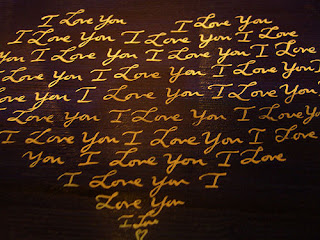 I Love You I Love You
I Love You I Love You I Love
I Love You I Love You I Love
Love You I Love You I Love You I
Love You I Love You I Love You
Love You I Love You I Love You
I Love You I Love You I Love
You I Love You I Love
I Love You I
Love You
I Love